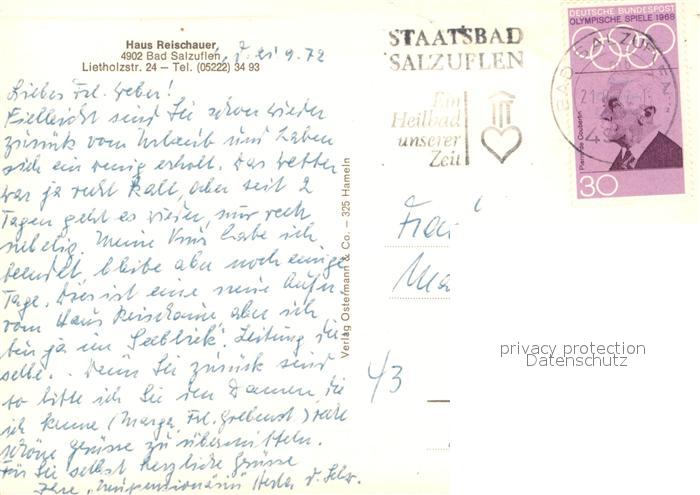 Haus Reischauer,
4902 Bad Salzuflen,
Lietholzstr. 24 – Tel. (05222) 34 93
21.9.72
Liebes Frl. Weber!
Vielleicht sind Sie schon wieder
zurück vom Urlaub und haben
sich ein wenig erholt. Das Wetter
war ja recht kalt, aber seit 2
Tagen geht es wieder, nur noch
nebelig. Meine Kur habe ich
beendet, bleibe aber noch einige
Tage. Dies ist eine neue Aufn.
vom Haus Reischauer aber ich
bin ja im Seeblick. Leitung die-
selbe. Wenn Sie zurück sind
so bitte ich Sie den Damen, die
ich kenne (Marga, Frl. ) recht
schöne Grüsse zu übermitteln.
Für Sie selbst herzliche Grüsse
Ihre
Verlag Ostermann & Co. – 325 Hameln
STAATSBAD
SALZUFLEN
Ein
Heilbad
unserer
Zeit
BAD SALZUFLEN
DEUTSCHE BUNDESPOST
OLYMPISCHE SPIELE 1968
Pierre de Coubertin
30
43
privacy protection
Datenschutz